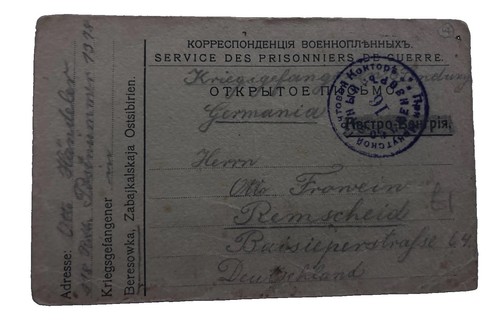 КОРРЕСПОНДЕНЦІЯ ВОЕННОПЛѢННЫХЪ.
SERVICE DES PRISONNIERS DE GUERRE.
Kriegsgefangenensendung
ОТКРЫТОЕ ПИСЬМО
Germania
Австро-Венгрія.
Herrn
Otto Frowein
Remscheid
Büsieperstraße 64.
Deutschland
Adresse: Otto Händeler
Kriegsgefangener
Beresowka, Zabajkalskaja Ostsibirien.